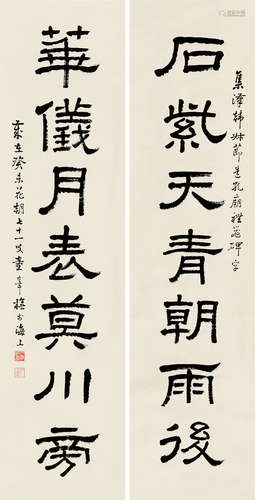 石紫天青朝雨後
集漢韓叔節造孔廟禮器碑字
華儀月表莫川旁
歲在癸未花朝七十一叟童海上